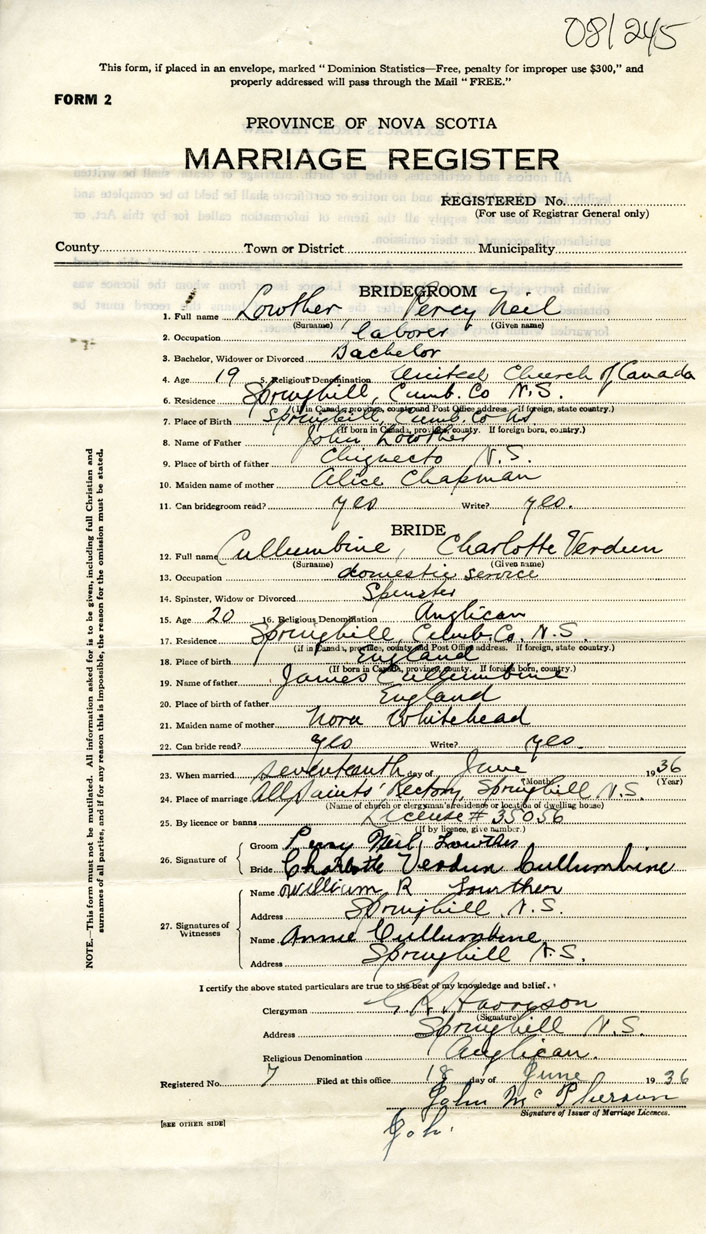 08/245
This form, if placed in an envelope, marked "Dominion Statistics—Free, penalty for improper use $300," and
properly addressed will pass through the Mail "FREE."
FORM 2
PROVINCE OF NOVA SCOTIA
MARRIAGE REGISTER
REGISTERED No.
(For use of Registrar General only)
County Town or District Municipality
BRIDEGROOM
1. Full name Lowther, Percy Neil
(Surname) (Given name)
2. Occupation laborer
3. Bachelor, Widower or Divorced Bachelor
4. Age 19 5. Religious Denomination United Church of Canada
6. Residence Springhill, Cumb. Co N.S.
(If in Canada, province, county and Post Office address. If foreign, state country.)
7. Place of Birth Springhill, Cumb. Co NS
(If born in Canada, province, county. If foreign born, country.)
8. Name of Father John Lowther
9. Place of birth of father Chignecto N.S.
10. Maiden name of mother Alice Chapman
11. Can bridegroom read? yes Write? yes.
BRIDE
12. Full name Cullumbine, Charlotte Verdun
(Surname) (Given name)
13. Occupation domestic service
14. Spinster, Widow or Divorced Spinster
15. Age 20 16. Religious Denomination Anglican
17. Residence Springhill, Cumb. Co. N.S.
(if in Canada, province, county and Post Office address. If foreign, state country.)
18. Place of birth England
(If born in Canada, province, county. If foreign born, country.)
19. Name of father James Cullumbine
20. Place of birth of father England
21. Maiden name of mother Nora Whitehead
22. Can bride read? yes Write? yes.
23. When married seventeenth day of June 1936
(Month) (Year)
24. Place of marriage All Saints' Rectory, Springhill N.S.
(Name of church or clergyman's residence or location of dwelling house)
25. By licence or banns License # 35056
(If by licence, give number.)
26. Signature of
Groom Percy Neil Lowther
Bride Charlotte Verdun Cullumbine
27. Signatures of Witnesses
Name William R Lowther
Address Springhill N.S.
Name Annie Cullumbine
Address Springhill N.S.
I certify the above stated particulars are true to the best of my knowledge and belief.
Clergyman G R Harrison
(Signature)
Address Springhill N.S.
Religious Denomination Anglican.
Registered No. 7 Filed at this office 18 day of June 1936
John McPherson
Signature of Issuer of Marriage Licences.
[SEE OTHER SIDE]
NOTE.—This form must not be mutilated. All information asked for is to be given, including full Christian and
surnames of all parties, and if for any reason this is impossible, the reason for the omission must be stated.